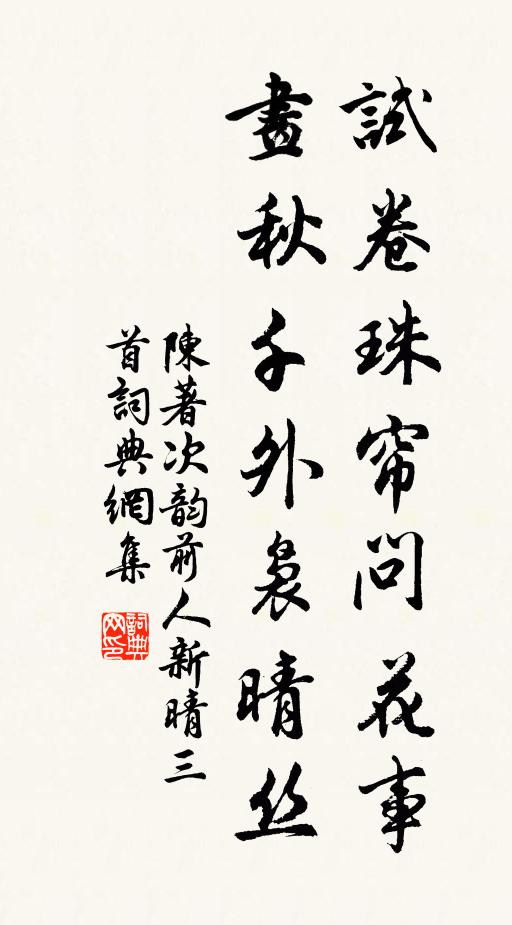 試卷珠帘問花事
畫秋千外裊晴丝
陳著次韵前人新晴三
首詞典網集
詞典
网印